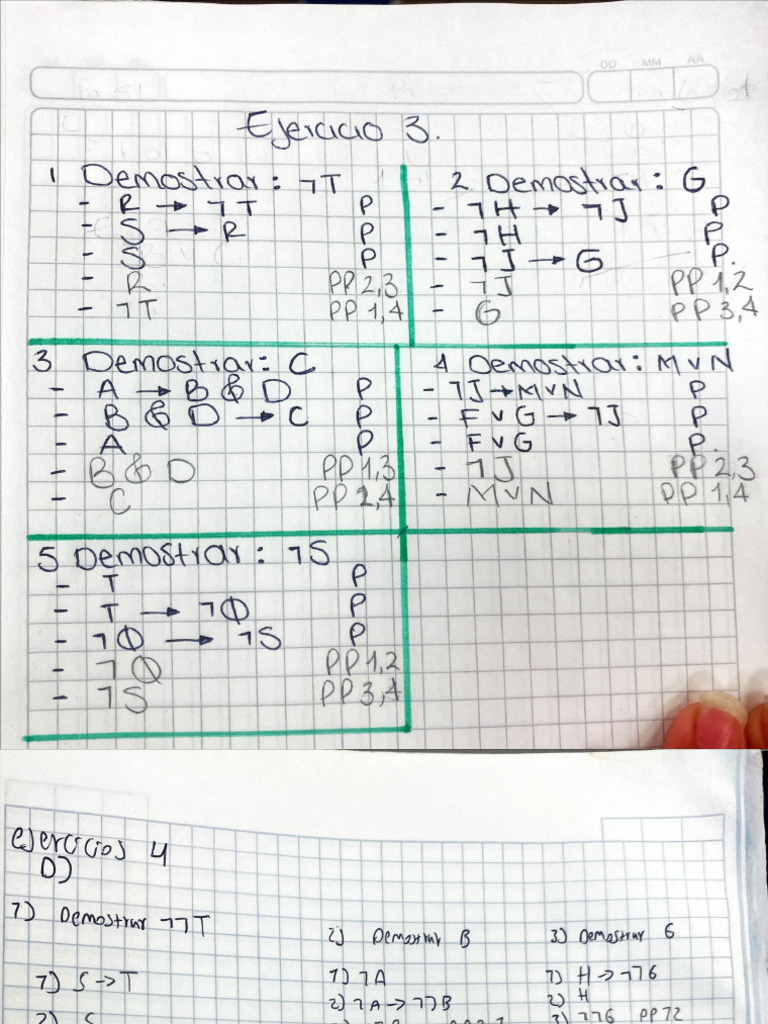 DD MM AA
Ejercicio 3.
1 Demostrar: ¬T
- R → ¬T P
- S → R P
- S P
- R PP 2,3
- ¬T PP 1,4
2 Demostrar: G
- ¬H → ¬J P
- ¬H P
- ¬J → G P.
- ¬J PP 1,2
- G PP 3,4
3 Demostrar: C
- A → B & D P
- B & D → C P
- A P
- B & D PP 1,3
- C PP 2,4
4 Demostrar: M v N
- ¬J → M v N P
- F v G → ¬J P
- F v G P.
- ¬J PP 2,3
- M v N PP 1,4
5 Demostrar: ¬S
- T P
- T → ¬Q P
- ¬Q → ¬S P
- ¬Q PP 1,2
- ¬S PP 3,4
ejercicios 4
D)
1) Demostrar ¬¬T
1) S → T
2) S
2) Demostrar B
1) ¬A
2) ¬A → ¬¬B
3) Demostrar G
1) H → ¬¬G
2) H
3) ¬¬G PP 1 2